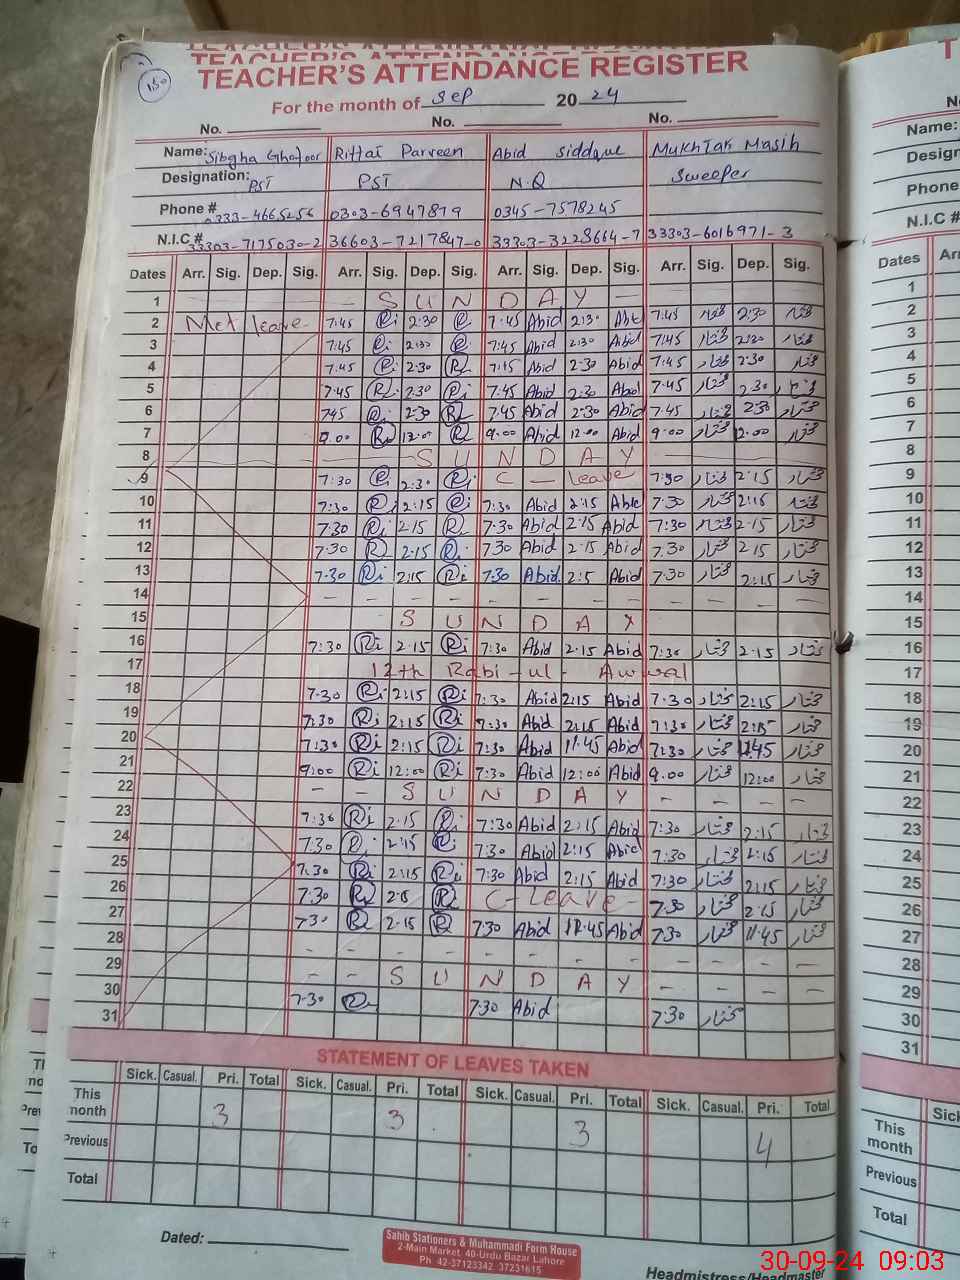 TEACHER'S ATTENDANCE REGISTER
TEACHER'S ATTENDANCE REGISTER
150
For the month of Sep 2024
No. No. No.
Name: Sibgha Ghafoor Riffat Parveen Abid Siddque Mukhtar Masih
Designation: PST PST N.Q Sweeper
Phone # 0333-4665256 0303-6947879 0345-7578245
N.I.C # 33303-7175030-2 36603-7217847-0 33303-3228664-7 33303-6016971-3
Dates Arr. Sig. Dep. Sig. Arr. Sig. Dep. Sig. Arr. Sig. Dep. Sig. Arr. Sig. Dep. Sig.
1 — S U N D A Y —
2 Met leave 7:45 Ri 2:30 R 7:45 Abid 2:30 Abid 7:45 مختار 2:30 مختار
3 7:45 Ri 2:30 R 7:45 Abid 2:30 Abid 7:45 مختار 2:30 مختار
4 7:45 Ri 2:30 R 7:15 Abid 2:30 Abid 7:45 مختار 2:30 مختار
5 7:45 Ri 2:30 Ri 7:45 Abid 2:30 Abid 7:45 مختار 2:30 مختار
6 745 Ri 2:30 R 7:45 Abid 2:30 Abid 7:45 مختار 2:30 مختار
7 9:00 Ri 12:00 R 9:00 Abid 12:00 Abid 9:00 مختار 12:00 مختار
8 S U N D A Y
9 7:30 Ri 2:30 Ri C — Leave 7:30 مختار 2:15 مختار
10 7:30 Ri 2:15 Ri 7:30 Abid 2:15 Abid 7:30 مختار 2:15 مختار
11 7:30 Ri 2:15 R 7:30 Abid 2:15 Abid 7:30 مختار 2:15 مختار
12 7:30 R 2:15 Ri 7:30 Abid 2:15 Abid 7:30 مختار 2:15 مختار
13 7:30 Ri 2:15 Ri 7:30 Abid 2:15 Abid 7:30 مختار 2:15 مختار
14 – – – – – – – – – – – –
15 S U N D A Y
16 7:30 Ri 2:15 Ri 7:30 Abid 2:15 Abid 7:30 مختار 2:15 مختار
17 12th Rabi-ul-Awwal
18 7:30 Ri 2:15 Ri 7:30 Abid 2:15 Abid 7:30 مختار 2:15 مختار
19 7:30 Ri 2:15 Ri 7:30 Abid 2:15 Abid 7:30 مختار 2:15 مختار
20 7:30 Ri 2:15 Ri 7:30 Abid 11:45 Abid 7:30 مختار 11:45 مختار
21 9:00 Ri 12:00 Ri 7:30 Abid 12:00 Abid 9:00 مختار 12:00 مختار
22 – – S U N D A Y – – – –
23 7:30 Ri 2:15 Ri 7:30 Abid 2:15 Abid 7:30 مختار 2:15 مختار
24 7:30 Ri 2:15 Ri 7:30 Abid 2:15 Abid 7:30 مختار 2:15 مختار
25 7:30 Ri 2:15 Ri 7:30 Abid 2:15 Abid 7:30 مختار 2:15 مختار
26 7:30 R 2:15 R C-Leave 7:30 مختار 2:15 مختار
27 7:30 R 2:15 R 7:30 Abid 11:45 Abid 7:30 مختار 11:45 مختار
28 – – – – – – – – – – – –
29 – – S U N D A Y – – – –
30 7:30 R 7:30 Abid 7:30 مختار
31
STATEMENT OF LEAVES TAKEN
Sick. Casual. Pri. Total Sick. Casual. Pri. Total Sick. Casual. Pri. Total Sick. Casual. Pri. Total
This month 3 3 3 4
Previous
Total
Dated:
Sahib Stationers & Muhammadi Form House
2-Main Market, 40-Urdu Bazar Lahore
Ph 42-37123342, 37231615
Headmistress/Headmaster
Name:
Phone #
N.I.C #
Dates
1
2
3
4
5
6
7
8
9
10
11
12
13
14
15
16
17
18
19
20
21
22
23
24
25
26
27
28
29
30
31
This month
Previous
Total
30-09-24 09:03